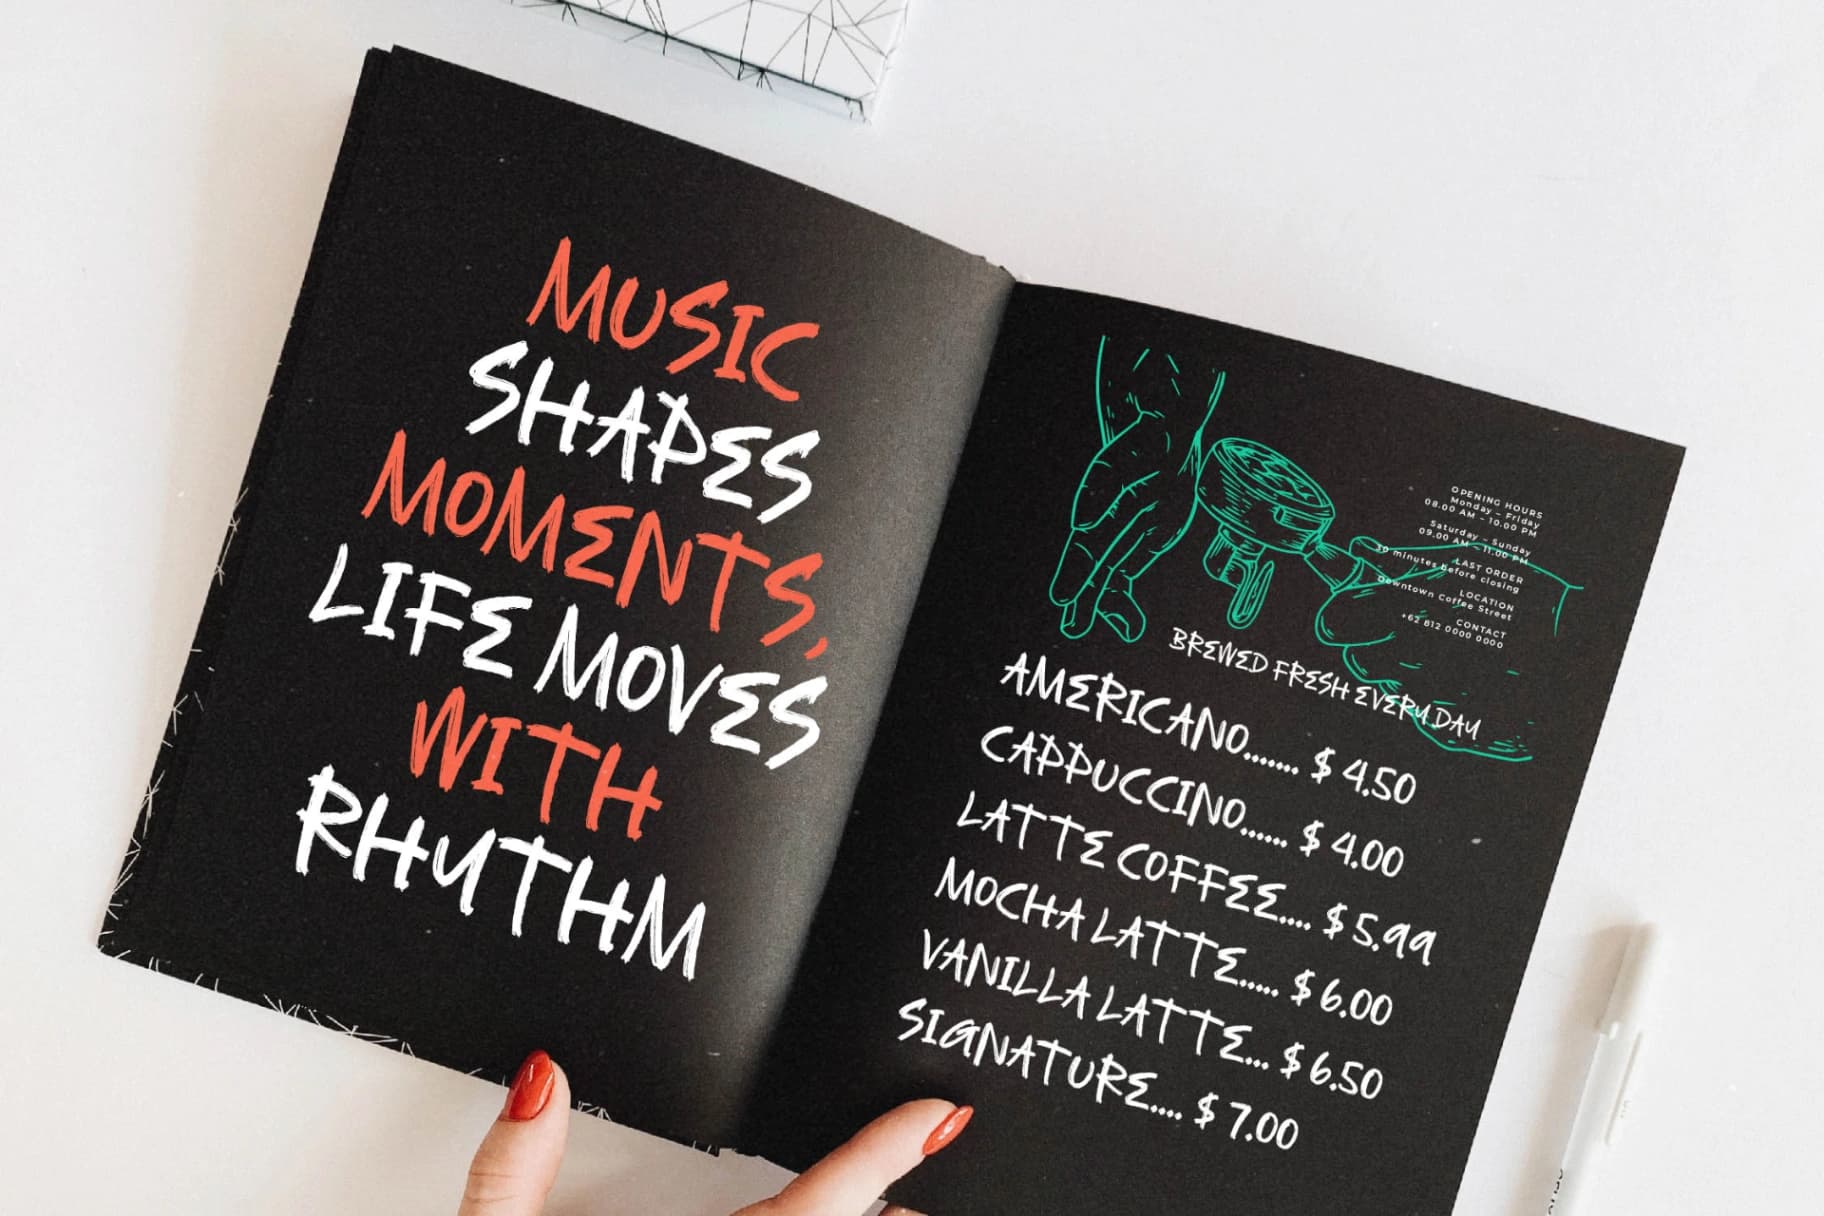 MUSIC
SHAPES
MOMENTS,
LIFE MOVES
WITH
RHYTHM
OPENING HOURS
Monday – Friday
08.00 AM – 10.00 PM
Saturday – Sunday
09.00 AM – 11.00 PM
LAST ORDER
30 minutes before closing
LOCATION
Downtown Coffee Street
CONTACT
+62 812 0000 0000
BREWED FRESH EVERY DAY
AMERICANO....... $ 4.50
CAPPUCCINO...... $ 4.00
LATTE COFFEE.... $ 5.99
MOCHA LATTE..... $ 6.00
VANILLA LATTE... $ 6.50
SIGNATURE.... $ 7.00